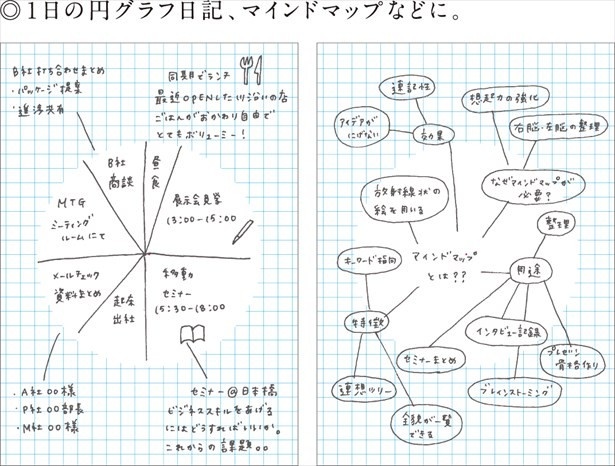 ◎1日の円グラフ日記、マインドマップなどに。
B社打ち合わせまとめ
・パッケージ提案
・進捗共有
同期でランチ
最近OPENした川沿いの店
ごはんがおかわり自由で
とてもボリューミー！
B社
商談
昼食
展示会見学
13:00-15:00
MTG
ミーティング
ルームにて
メールチェック
資料まとめ
起床
出社
移動
セミナー
15:30-18:00
・A社○○様
・P社○○部長
・M社○○様
セミナー@日本橋
ビジネススキルをあげる
にはどうすればいいか。
これからの課題○○
速記性
アイデアが
にげない
効果
想起力の強化
右脳・左脳の整理
なぜマインドマップが
必要？
放射線状の
絵を用いる
マインドマップ
とは??
整理
用途
キーワード指向
特徴
連想ツリー
全貌が一覧
できる
セミナーまとめ
インタビュー記録
プレゼン
骨格作り
ブレインストーミング